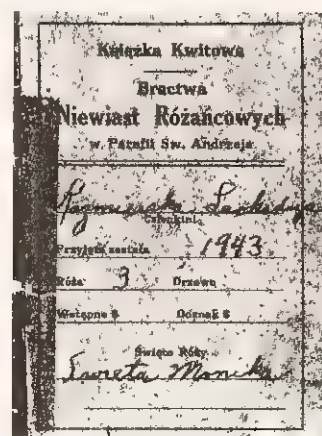 Książka Kwitowa
Bractwa
Niewiast Różańcowych
w Parafii Św. Andrzeja
Członkini
Przyjęta została 1943
Róża 3 Drzewo
Wstępne $ Odznak $
Święto Róży
Święta Monika